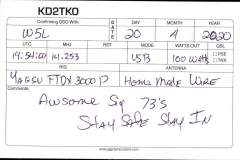 KD2TKO
Confirming QSO With: DATE DAY MONTH YEAR
W5L 20 4 2020
UTC MHz MODE WATTS OUT QSL
19:54:00 14.253 USB 100 WATTS PSE TNX
RIG ANTENNA
YAESU FTDX 3000 P HomeMade Wire
Awsome Sig 73's
Stay Safe Stay In